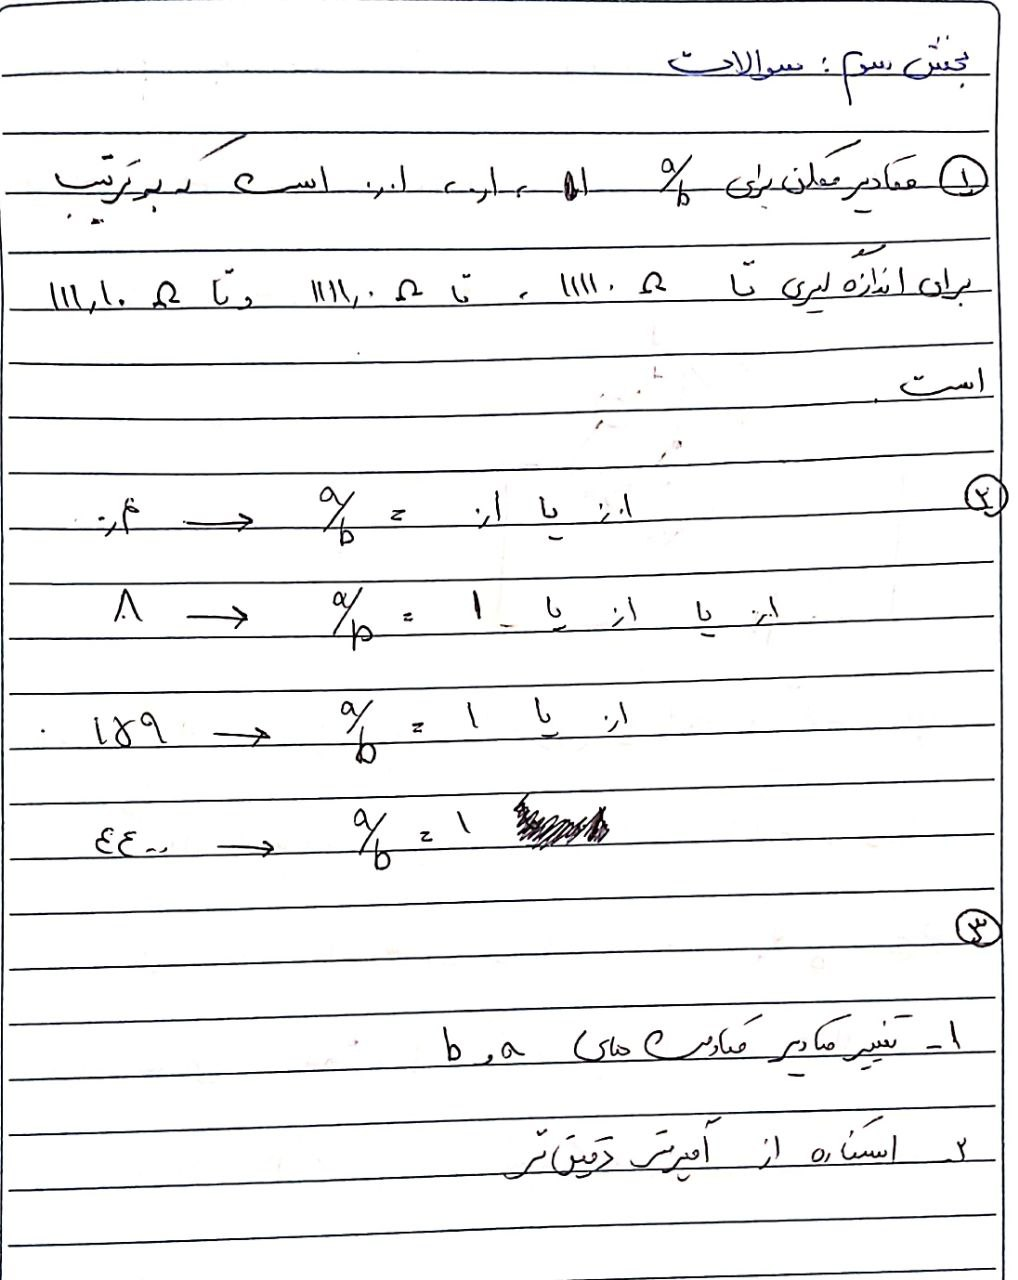 بخش سوم : سوالات
① مقادیر ممکن برای a/b ۱ ، ۰٫۱ ، ۰٫۰۱ است که به ترتیب
برای اندازه گیری تا ۱۱۱۱۰ Ω ، تا ۱۱۱۱٫۰ Ω و تا ۱۱۱٫۱۰ Ω
است .
②
→ a/b = ۰٫۱ یا ۰٫۰۱
۸۰ → a/b = ۱ یا ۰٫۱ یا ۰٫۰۱
۱۵۹ → a/b = ۱ یا ۰٫۱
٤٤۰۰ → a/b = ۱
③
۱- تغییر مقادیر مقاومت های a و b
۲- استفاده از آمپرمتر دقیق تر